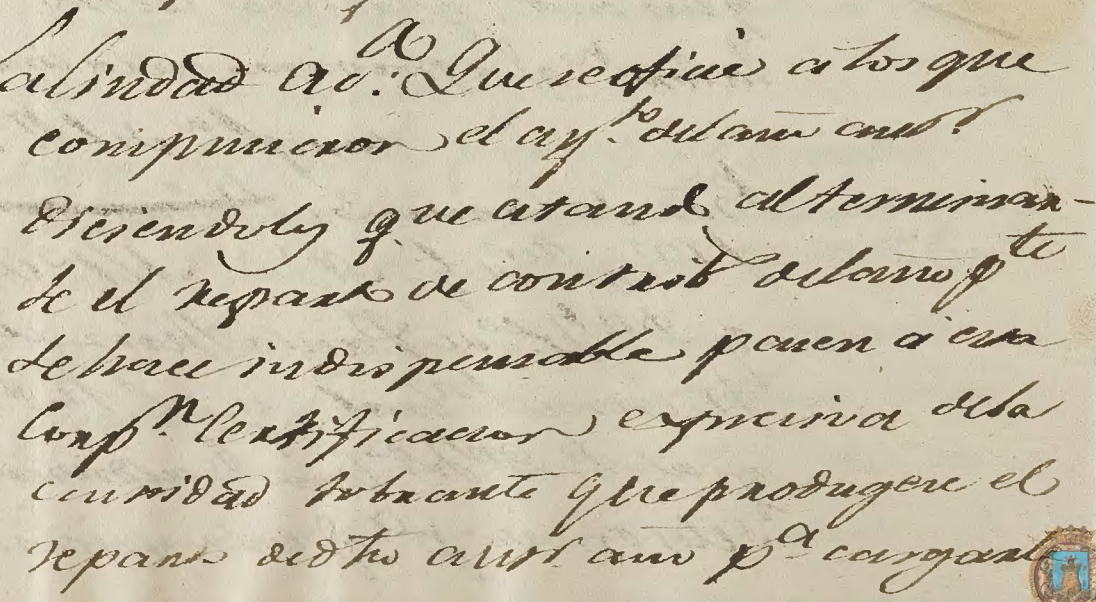 calindad ao.: Que se oficie a los que
compusieron el ay.to del año ant.r
diciendoles que estando al terminar
se el repart.o de contrib.n del año p.te
se hace indispensable pasen a esta
Corp.n Certificacion expresiva dela
cantidad sobrante que produgere el
reparto de dho ant.r año p.a cargar